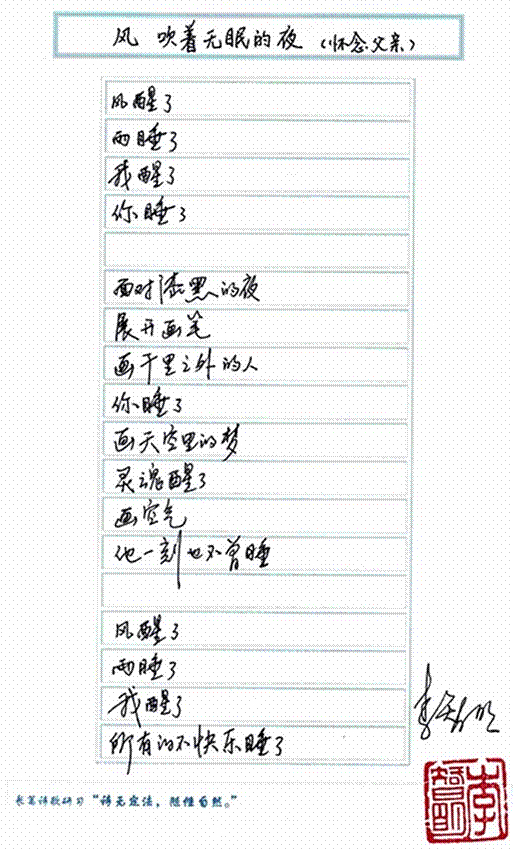 风 吹着无眠的夜（怀念父亲）
风醒了
雨睡了
我醒了
你睡了
面对漆黑的夜
展开画笔
画千里之外的人
你睡了
画天空里的梦
灵魂醒了
画空气
他一刻也不曾睡
风醒了
雨睡了
我醒了
所有的不快乐睡了
“诗无定法，随性自然。”